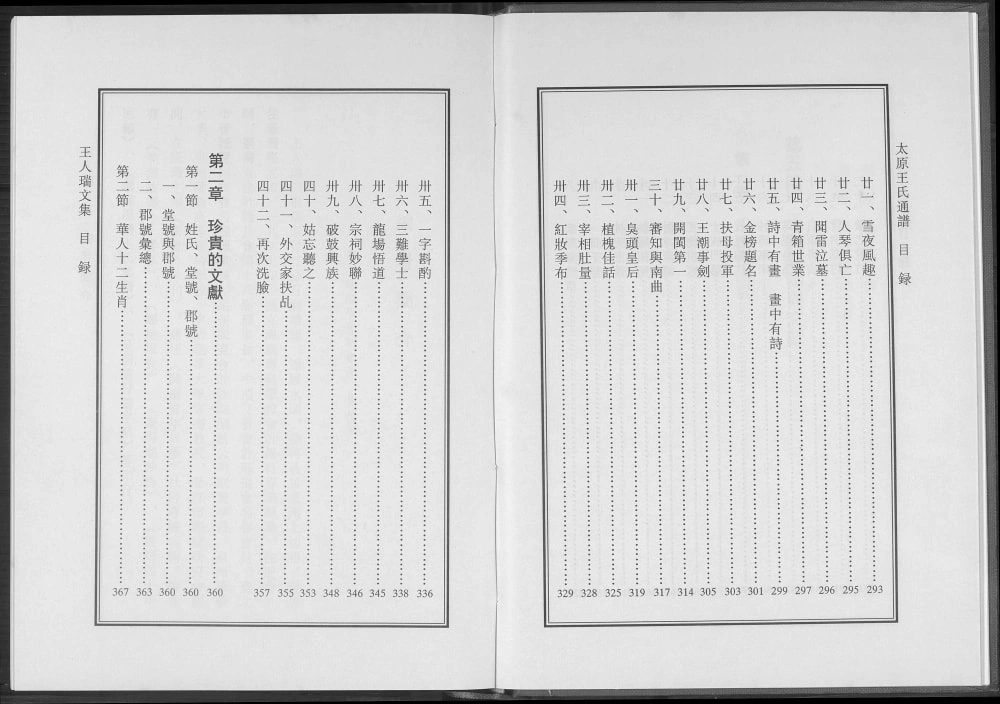 太原王氏通譜　目　録
廿一、雪夜風趣……293
廿二、人琴俱亡……295
廿三、聞雷泣墓……296
廿四、青箱世業……297
廿五、詩中有畫　畫中有詩……299
廿六、金榜題名……301
廿七、扶母投軍……303
廿八、王潮事劍……305
廿九、開閩第一……314
三十、審知與南曲……317
卅一、臭頭皇后……319
卅二、植槐佳話……325
卅三、宰相肚量……328
卅四、紅妝季布……329
卅五、一字斟酌……336
卅六、三難學士……338
卅七、龍場悟道……345
卅八、宗祠妙聯……346
卅九、破鼓興族……348
四十、姑忘聽之……353
四十一、外交家扶乩……355
四十二、再次洗臉……357
第二章　珍貴的文獻……360
第一節　姓氏、堂號、郡號……360
一、堂號與郡號……360
二、郡號彙總……363
第二節　華人十二生肖……367
王人瑞文集　目　録